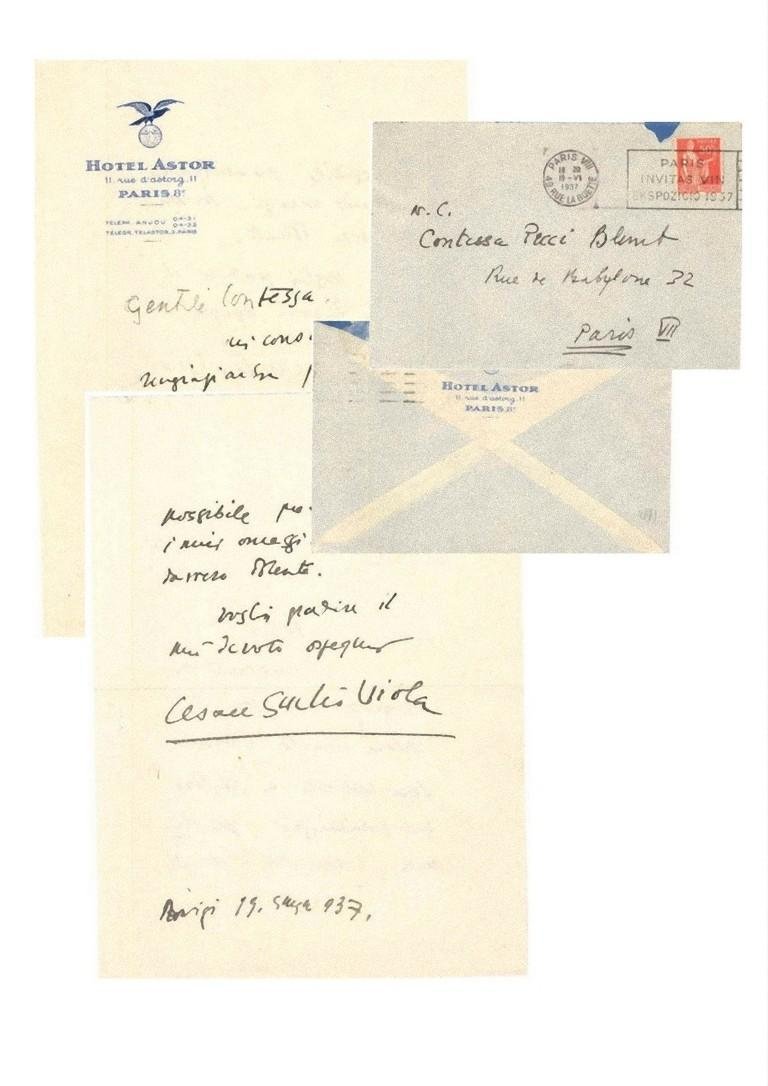 HOTEL ASTOR
11. rue d'astorg. 11
PARIS. 8e
TELEPH. ANJOU 04-31
04-32
TELEGR. TELASTOR. 3. PARIS
Gentile Contessa.
mi cons
possibile
i miei omaggi
davvero dolente.
voglia gradire il
mio devoto ossequio
Cesare Giulio Viola
Parigi 19. 937.
PARIS VIII
18 30
19-VI
1937
49 RUE LA BOETIE
PARIS
INVITAS VIN
EKSPOZICIO 1937
N. C.
Contessa Pecci Blunt
Rue de Babylone 32
Paris VII
HOTEL ASTOR
11. rue d'astorg. 11
PARIS. 8e